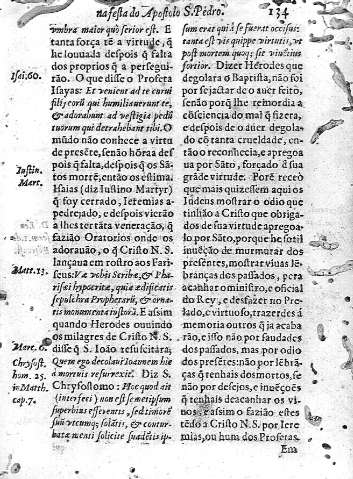 na festa do Apostolo S. Pedro. 134
vmbra maior quò serior est. E
tanta força tē a virtude, q̃
he louuada despois q̃ falta
dos proprios q̃ a persegui-
rão. O que disse o Profeta
Isai. 60.
Isayas: Et venient ad te curui
filij eorũ qui humiliauerunt te,
& adorabunt ad vestigia pedũ
tuorum qui detrahebant tibi. O
mũdo não conhece a virtu
de presẽte, senão hõraa des-
pois q̃ falta, despois q̃ os Sã-
tos morrẽ, então os estima.
Iustin. Mart.
Isaias (diz Iustino Martyr)
q̃ foy cerrado, Ieremias a-
pedrejado, e despois vierão
a lhes ter tãta veneração, q̃
fazião Oratorios onde os
adorauão, o q̃ Cristo N. S.
lançaua em rostro aos Fari-
Mat. 23.
seus: Væ vobis Scribæ, & Pha-
risæi hypocritæ, quia ædificatis
sepulchra Prophetarũ, & orna-
tis monumenta iustorũ. E assim
quando Herodes ouuindo
os milagres de Cristo N. S.
Marc. 6.
disse q̃ S. Ioão resuscitára,
Chrysost. hom. 25. in Matth. cap. 7.
Quem ego decollaui Ioannem hic
à mortuis resurrexit. Diz S.
Chrysostomo: Hoc quod ait
(interfeci) non est se metipsum
superbius efferentis, sed timorẽ
suũ vtcumq; solãtis, & contur-
batæ menti solicite suadẽtis ip-
sum erat qui à se fuerat occisus:
tanta est vis quippe virtutis, vt
post mortem quoq; sit viuentius
fortior. Dizer Herodes que
degolara o Baptista, não foi
por se jactar de o auer feito,
senão porq̃ lhe remordia a
cõsciencia do mal q̃ fizera,
e despois de o auer degola-
do cõ tanta crueldade, en-
tão o reconhecia, e apregoa
ua por Sãto, forçado da sua
grãde virtude. Porẽ receo
que mais quizessem aqui os
Iudeus mostrar o odio que
tinhão a Cristo que obriga-
dos de sua virtude apregoa-
lo por Sãto, porque he sotil
inuẽção de murmurar dos
presentes, mostrar viuas lẽ-
branças dos passados, pera
acanhar o ministro, e oficial
do Rey, e desfazer no Pre-
lado, e virtuoso, trazerdes à
memoria outros q̃ ja acaba
rão, e isso não por saudades
dos passados, mas por odio
dos presẽtes: não por lẽbrã-
ças q̃ tenhais dos mortos, se
não por desejos, e inuẽções
q̃ tenhais de acanhar os vi-
uos. e assim o fazião estes
tẽdo a Cristo N. S. por Iere
mias, ou hum dos Profetas.
Em